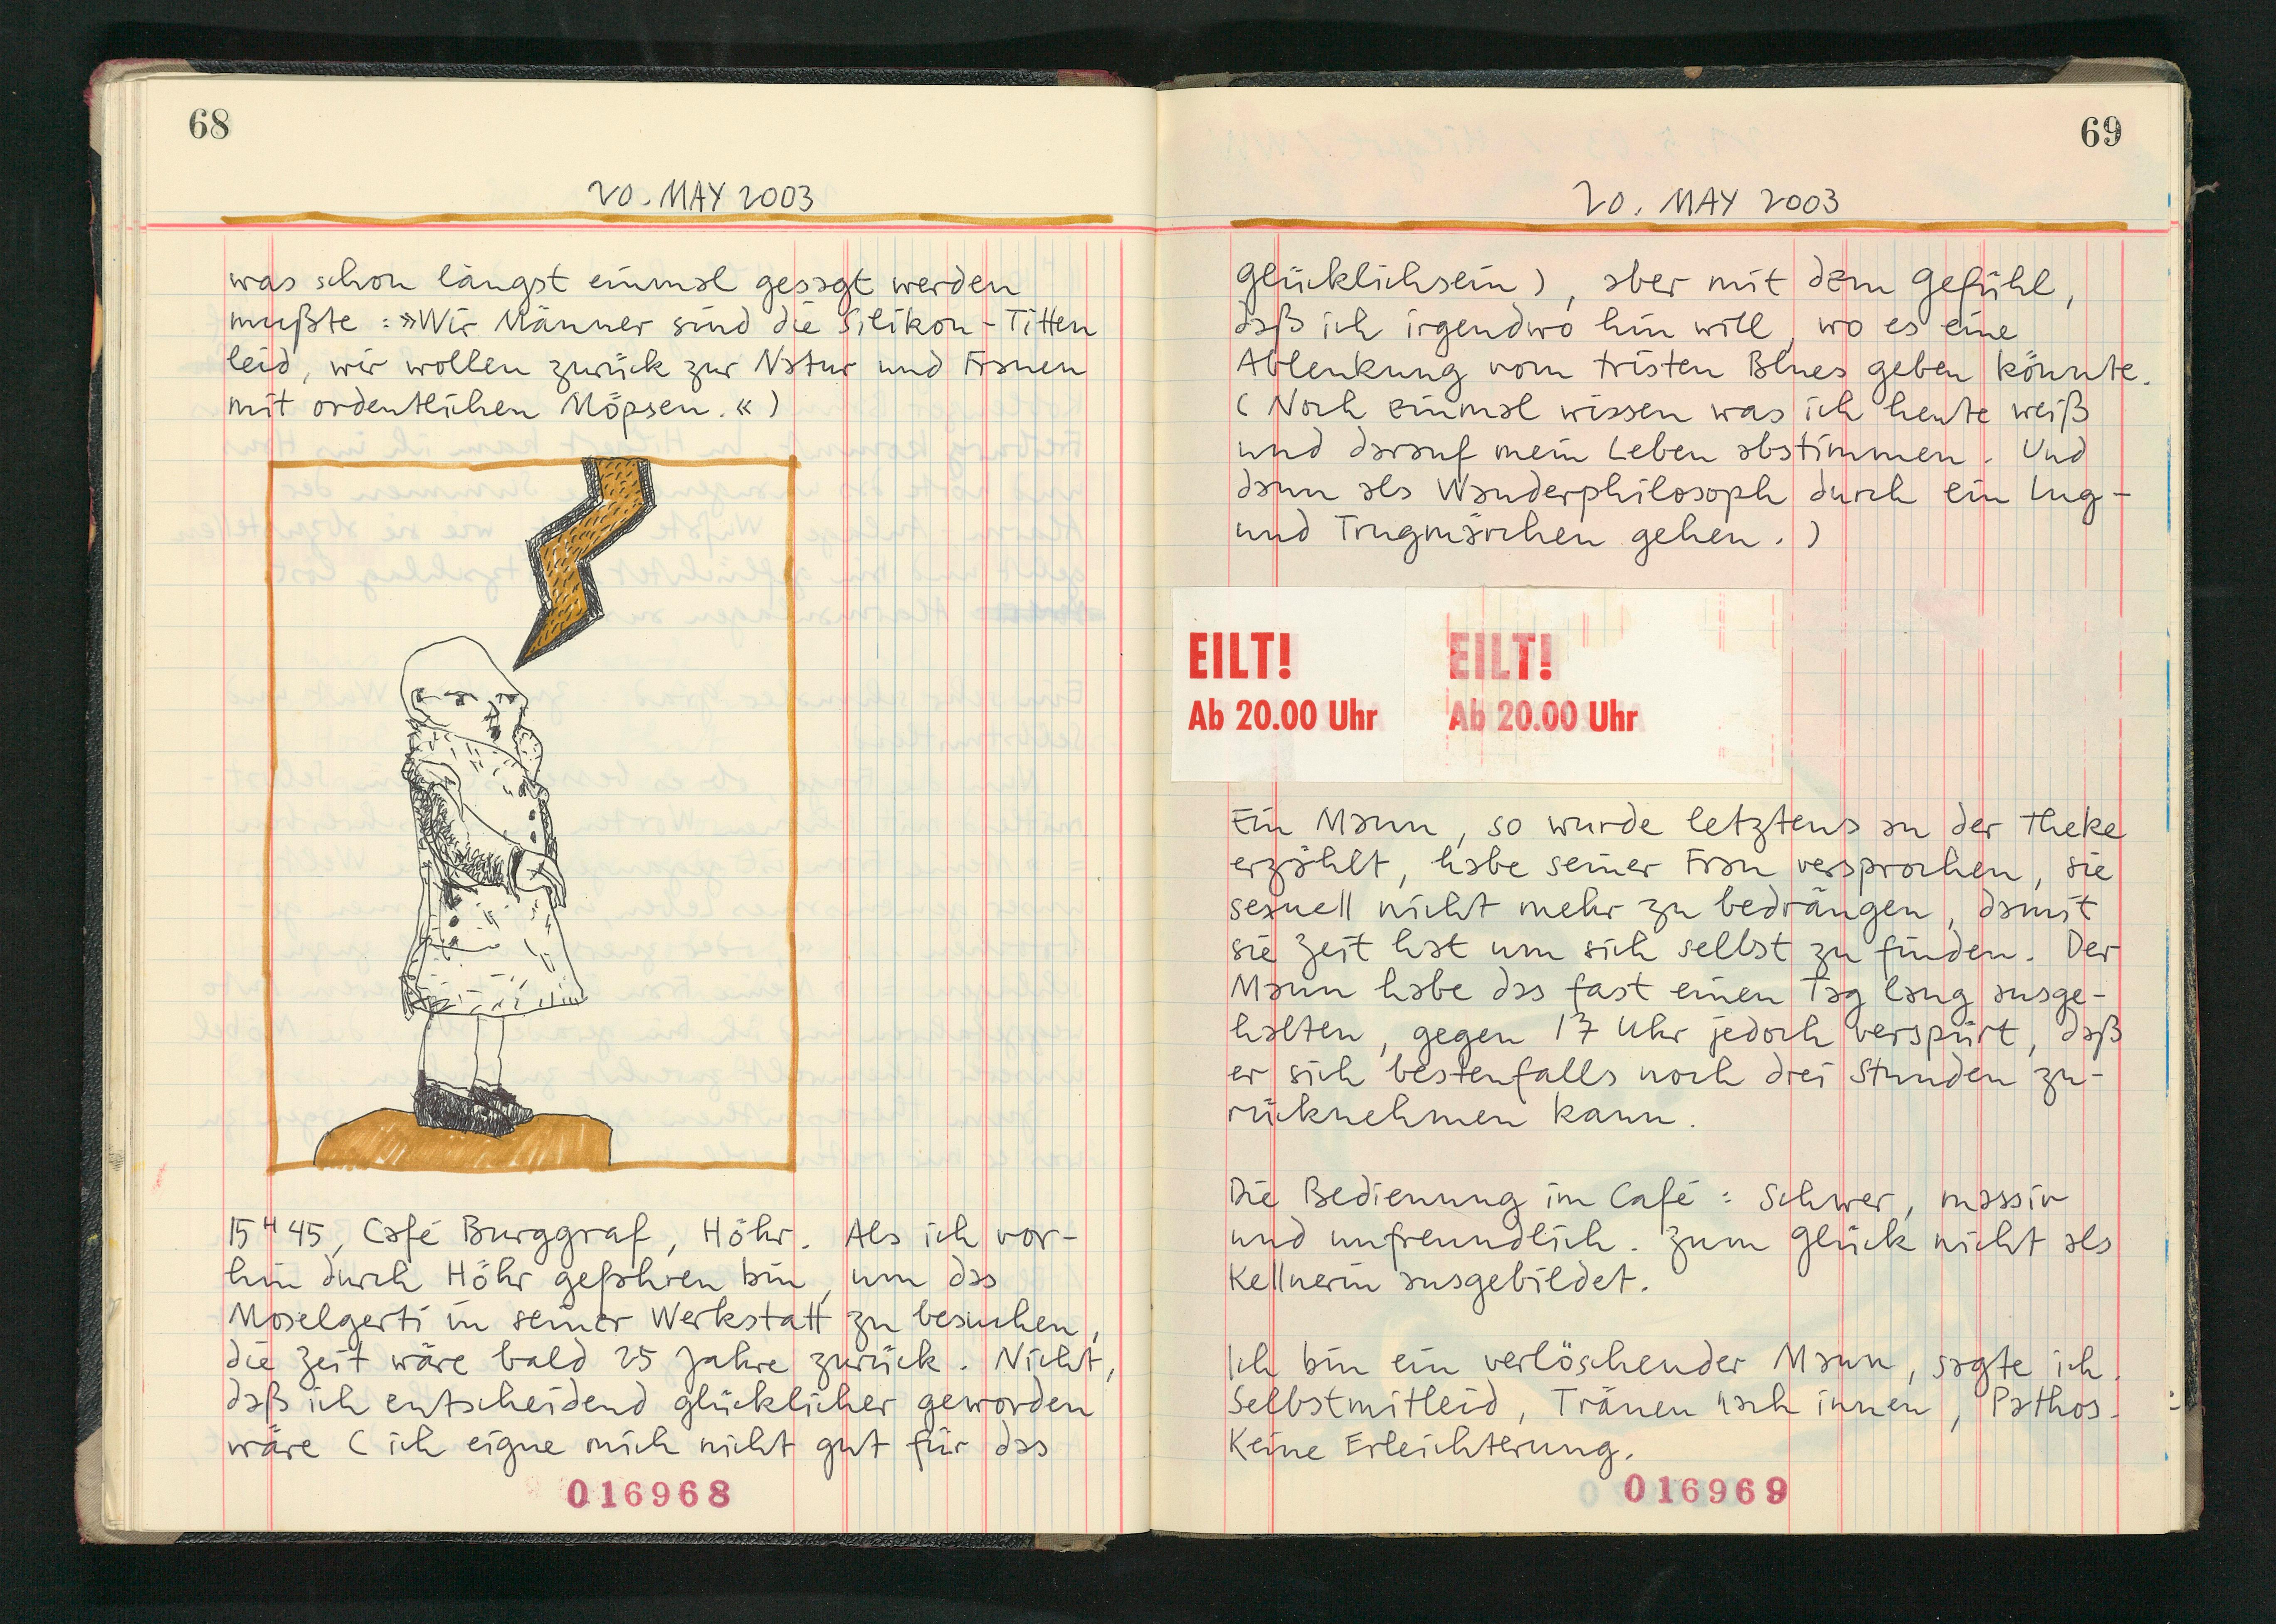 68
20. MAY 2003
was schon längst einmal gesagt werden
mußte: »Wir Männer sind die Silikon-Titten
leid, wir wollen zurück zur Natur und Frauen
mit ordentlichen Möpsen.«)
15 H 45, Café Burggraf, Höhr. Als ich vor-
hin durch Höhr gefahren bin, um das
Moselgerti in seiner Werkstatt zu besuchen,
die Zeit wäre bald 25 Jahre zurück. Nicht,
daß ich entscheidend glücklicher geworden
wäre (ich eigne mich nicht gut für das
016968
69
20. MAY 2003
Glücklichsein), aber mit dem Gefühl,
daß ich irgendwo hin will, wo es eine
Ablenkung vom tristen Blues geben könnte.
(Noch einmal wissen was ich heute weiß
und darauf mein Leben abstimmen. Und
dann als Wanderphilosoph durch ein Lug-
und Trugmärchen gehen.)
EILT! EILT!
Ab 20.00 Uhr Ab 20.00 Uhr
Ein Mann, so wurde letztens an der Theke
erzählt, habe seiner Frau versprochen, sie
sexuell nicht mehr zu bedrängen, damit
sie Zeit hat um sich selbst zu finden. Der
Mann habe das fast einen Tag lang ausge-
halten, gegen 17 Uhr jedoch verspürt, daß
er sich bestenfalls noch drei Stunden zu-
rücknehmen kann.
Die Bedienung im Café: Schwer, massiv
und unfreundlich. Zum Glück nicht als
Kellnerin ausgebildet.
Ich bin ein verlöschender Mann, sagte ich.
Selbstmitleid, Tränen nach innen, Pathos.
Keine Erleichterung.
016969